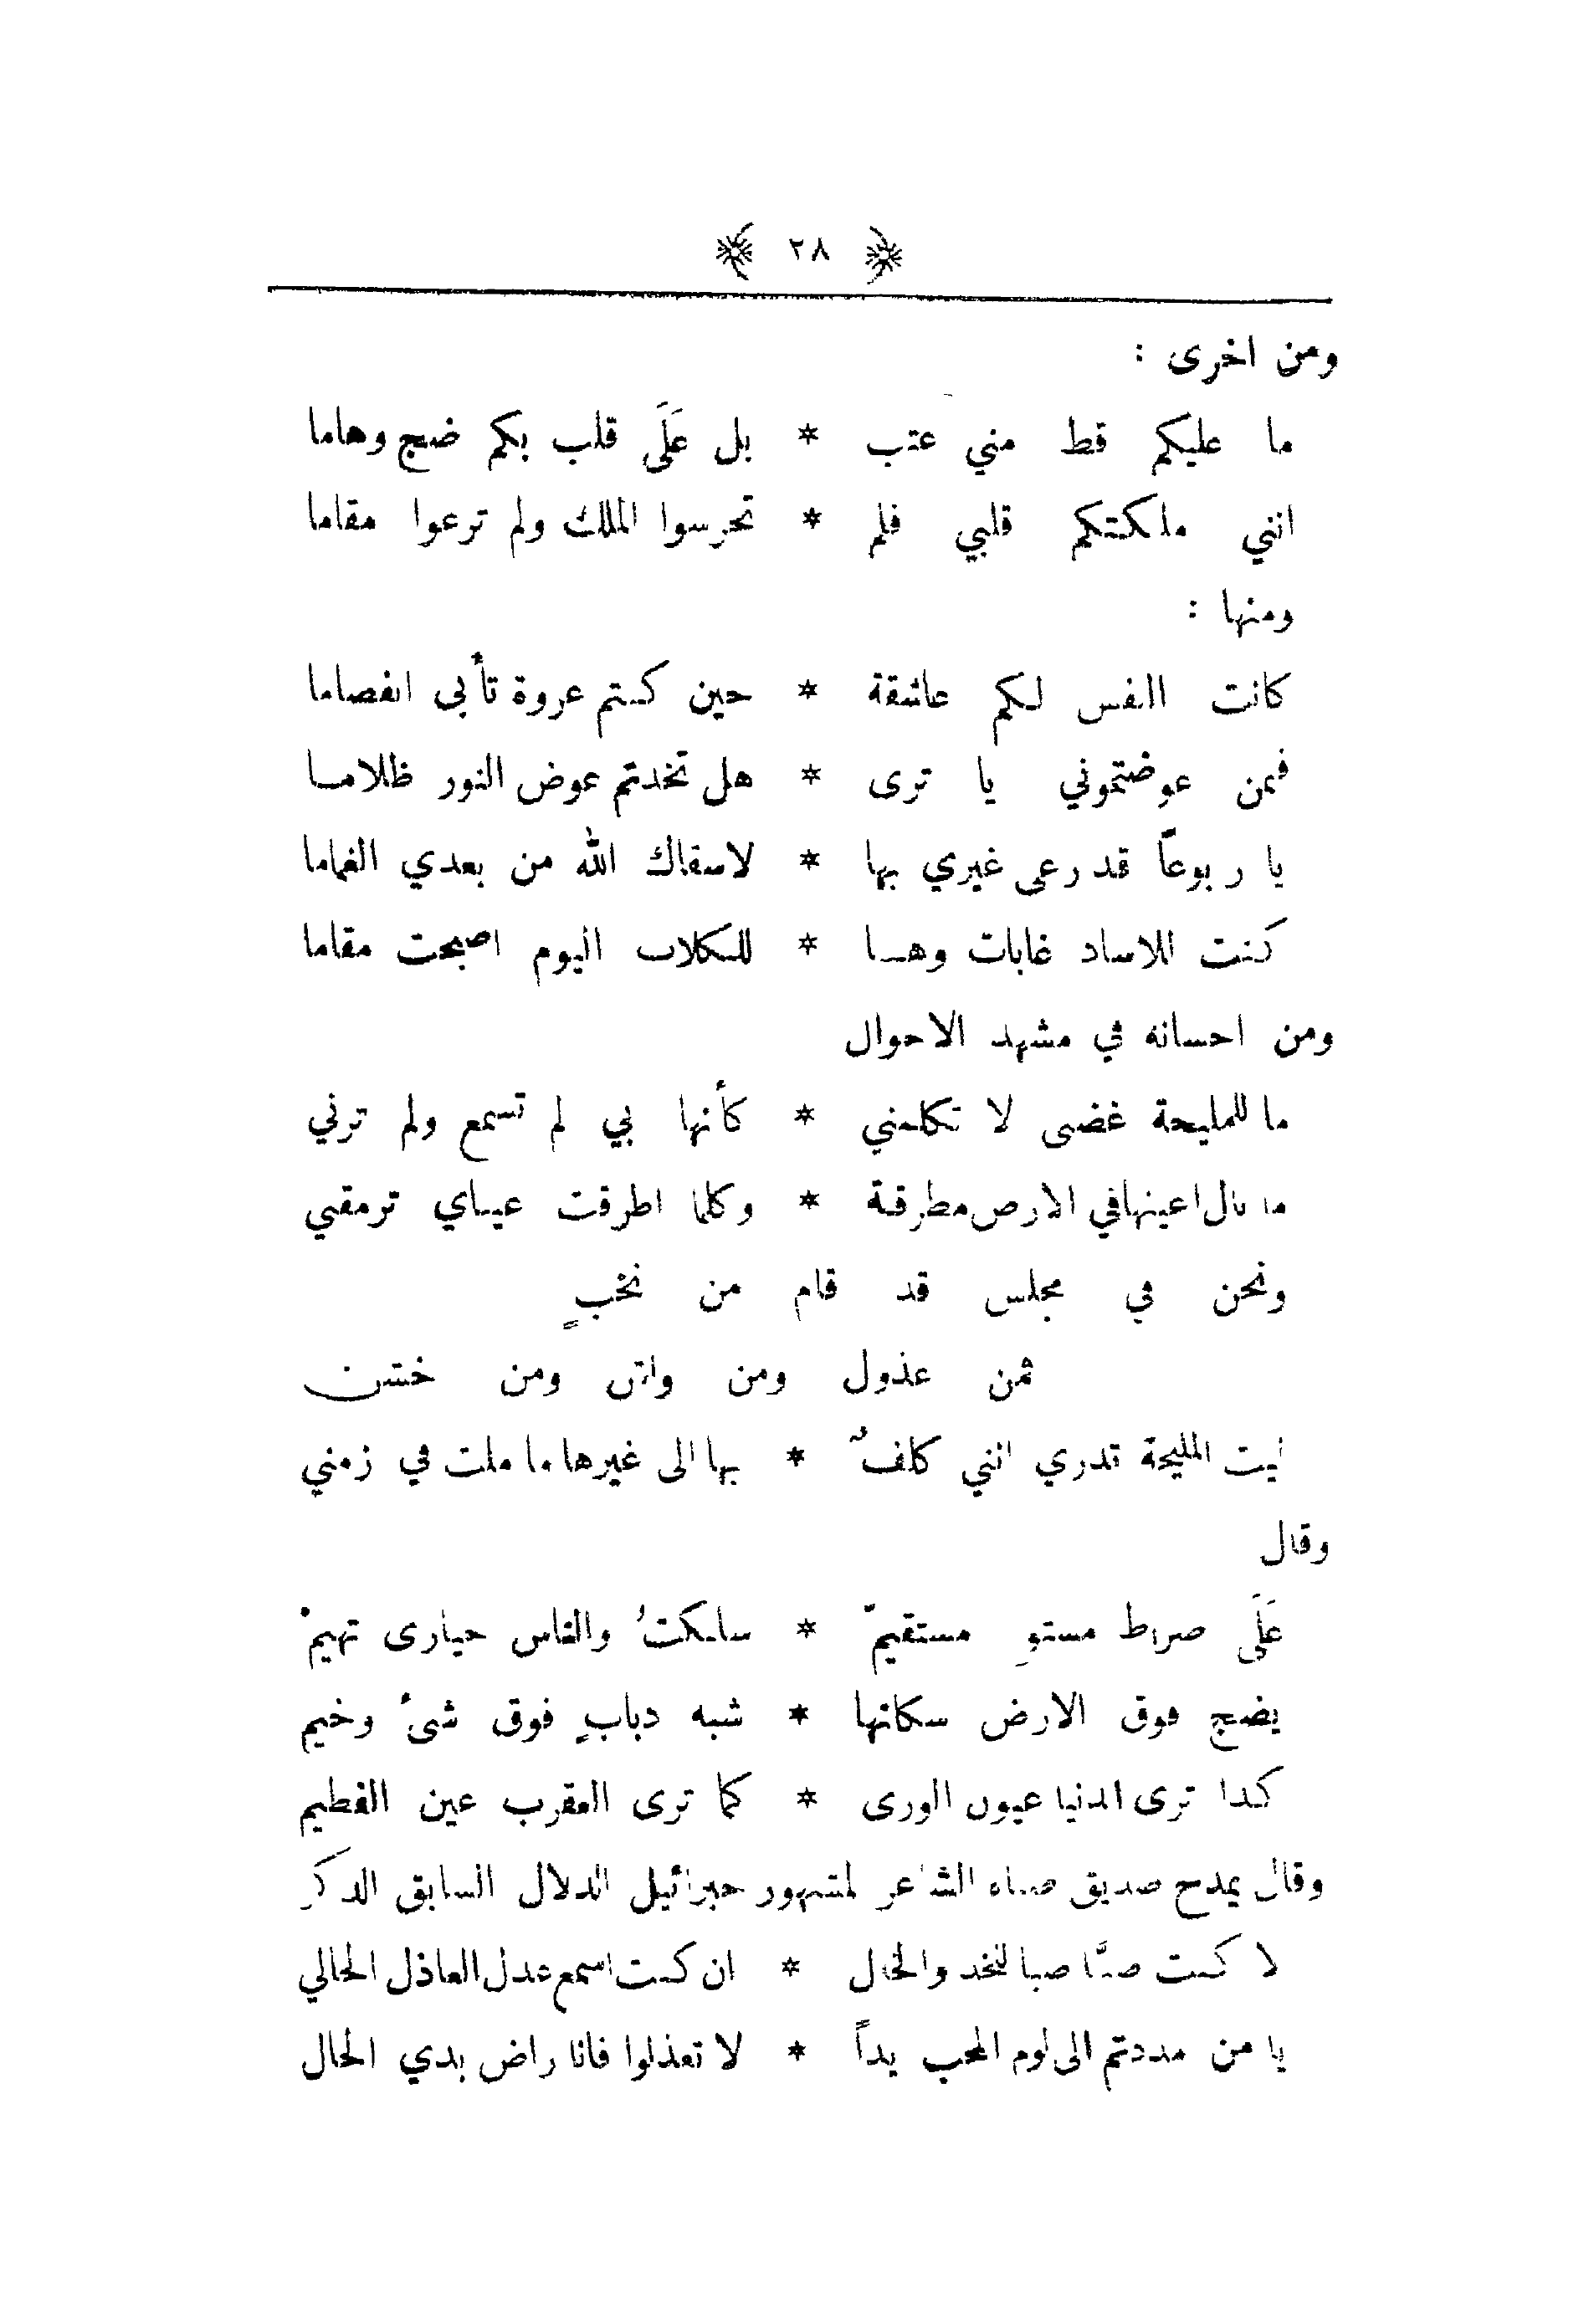 ٢٨
ومن اخرى :
ما عليكم قط مني عتب * بل عَلَى قلب بكم ضج وهاما
انني ملكتكم قلبي فلم * تحرسوا الملك ولم ترعوا مقاما
ومنها :
كانت النفس لكم عاشقة * حين كنتم عروة تأبى انفصاما
فبمن عوضتموني يا ترى * هل تخذتم عوض النور ظلاما
يا ربوعاً قد رعى غيري بها * لا سقاك الله من بعدي الغماما
كنت للاساد غابات وها * للكلاب اليوم اصبحت مقاما
ومن احسانه في مشهد الاحوال
ما للمليحة غضبى لا تكلمني * كأنها بي لم تسمع ولم ترني
ما بال اعينها في الارض مطرقة * وكلما اطرقت عيناي ترمقني
ونحن في مجلس قد قام من نخبٍ
ثمن عذول ومن واش ومن خشن
ليت المليحة تدري انني كلفٌ * بها الى غيرها ما ملت في زمني
وقال
عَلَى صراط مستوٍ مستقيمْ * سلكتُ والناس حيارى تهيمْ
يضج فوق الارض سكانها * شبه ذبابٍ فوق شئ وخيم
كذا ترى الدنيا عيون الورى * كما ترى العقرب عين الفطيم
وقال يمدح صديق صباه الشاعر المشهور جبرائيل الدلال السابق الذكر
لا كنت صبًّا صبا للخد والخال * ان كنت اسمع عذل العاذل الخالي
يا من مددتم الى لوم المحب يداً * لا تعذلوا فانا راض بذي الحال